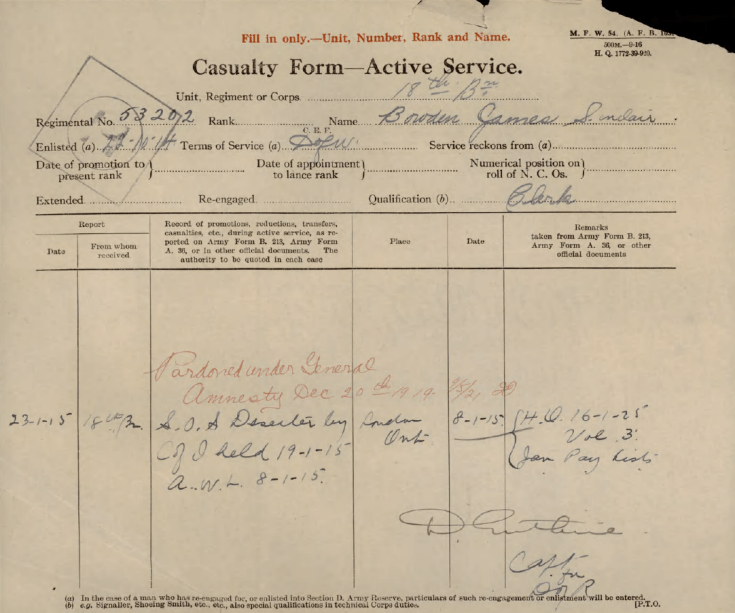 Fill in only.—Unit, Number, Rank and Name.
M. F. W. 54. (A. F. B. 103)
500M.—9-16
H. Q. 1772-39-920.
Casualty Form—Active Service.
Unit, Regiment or Corps 18th Bn
Regimental No. 53202 Rank Name Bowden James Sinclair
C. E. F.
Enlisted (a) Terms of Service (a) D of W Service reckons from (a)
Date of promotion to present rank } Date of appointment to lance rank } Numerical position on roll of N. C. Os. }
Extended Re-engaged Qualification (b) Clerk
Report
Date
From whom received
Record of promotions, reductions, transfers, casualties, etc., during active service, as reported on Army Form B. 213, Army Form A. 36, or in other official documents. The authority to be quoted in each case
Place
Date
Remarks taken from Army Form B. 213, Army Form A. 36, or other official documents
Pardoned under General
Amnesty Dec 20th 1919
23-1-15 18th Bn S.O.S Deserter by London 8-1-15 H.Q. 16-1-25
C of I held 19-1-15 Ont Vol 3
A.W.L. 8-1-15. Jan Pay Lists
D. Guthrie
Capt. for
(a) In the case of a man who has re-engaged for, or enlisted into Section D. Army Reserve, particulars of such re-engagement or enlistment will be entered.
(b) e.g. Signaller, Shoeing Smith, etc., etc., also special qualifications in technical Corps duties. [P.T.O.